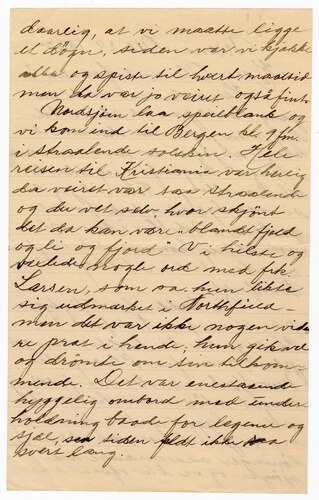 daarlig, at vi maatte ligge
et døgn, siden var vi kjække
alle og spiste til hvert maaltid
men da var jo veiret også fint.
Nordsjøen laa speilblank og
vi kom ind til Bergen kl. 9 fm.
i straalende solskin. Hele
reisen til Kristiania var herlig
da veiret var saa straalende
og du vet selv hvor skjønt
det da kan være "blandt fjeld
og li og fjord" Vi hilste og
vekslede nogle ord med frk.
Larsen, som sa hun likte
sig udmærket i Northfield —
men det var ikke nogen vide
re prat i hende, hun gik vel
og drömte om sin tilkom-
mende. Det var enestaaende
hyggelig ombord med under
holdning baade for legeme og
sjæl, saa tiden faldt ikke saa
svert lang.